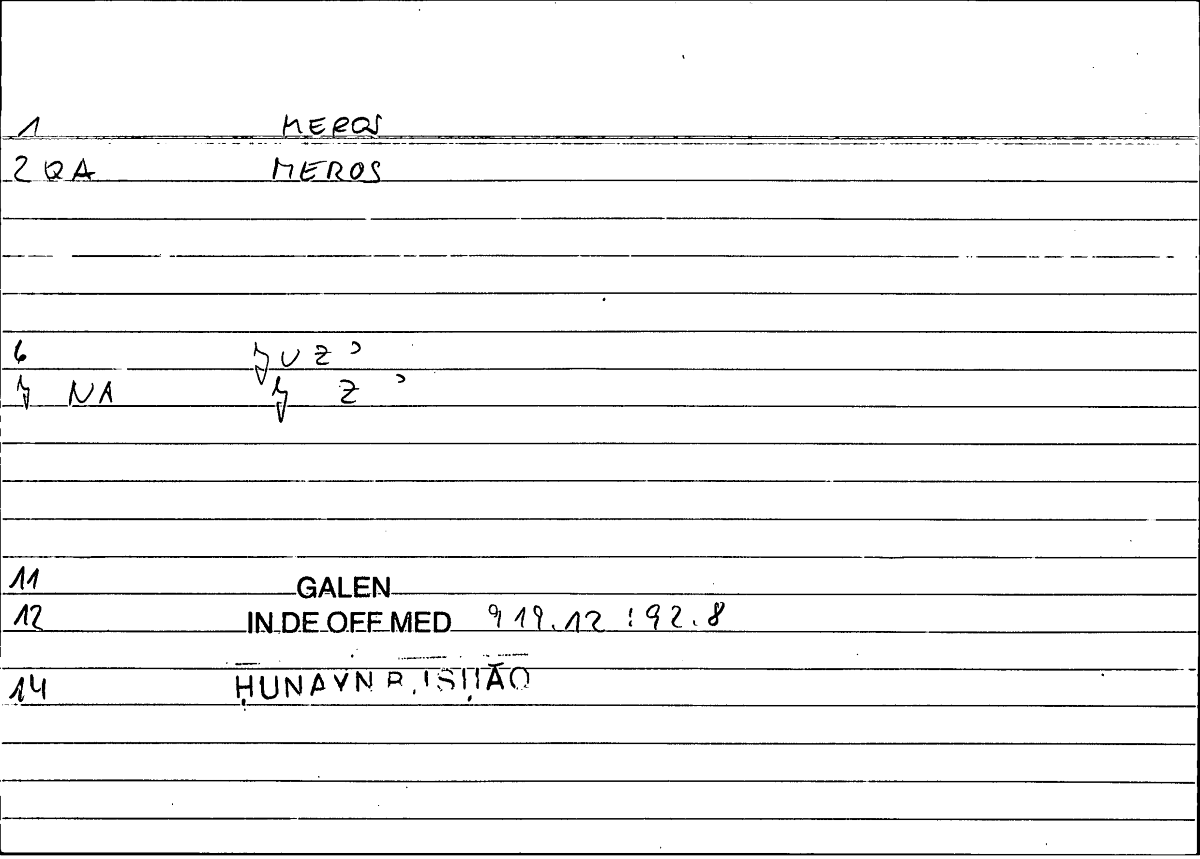 1 MEROS
2 QA MEROS
6 UZʾ
NA Z ʾ
11 GALEN
12 IN DE OFF MED 19.12 : 92.8
14 ḤUNAYN B. ISḤĀQ